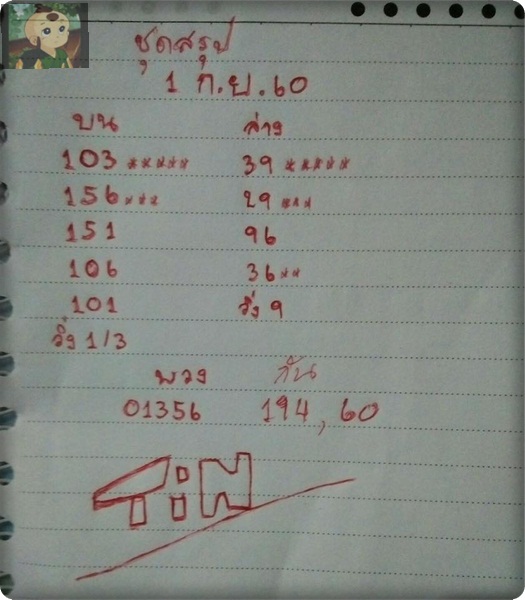 ชุดสรุป
1 ก.ย.60
บน ล่าง
103 ***** 39 *****
156 *** 29 ***
151 96
106 36 **
101 วิ่ง 9
วิ่ง 1/3
พวง กัน
01356 194, 60
TiN